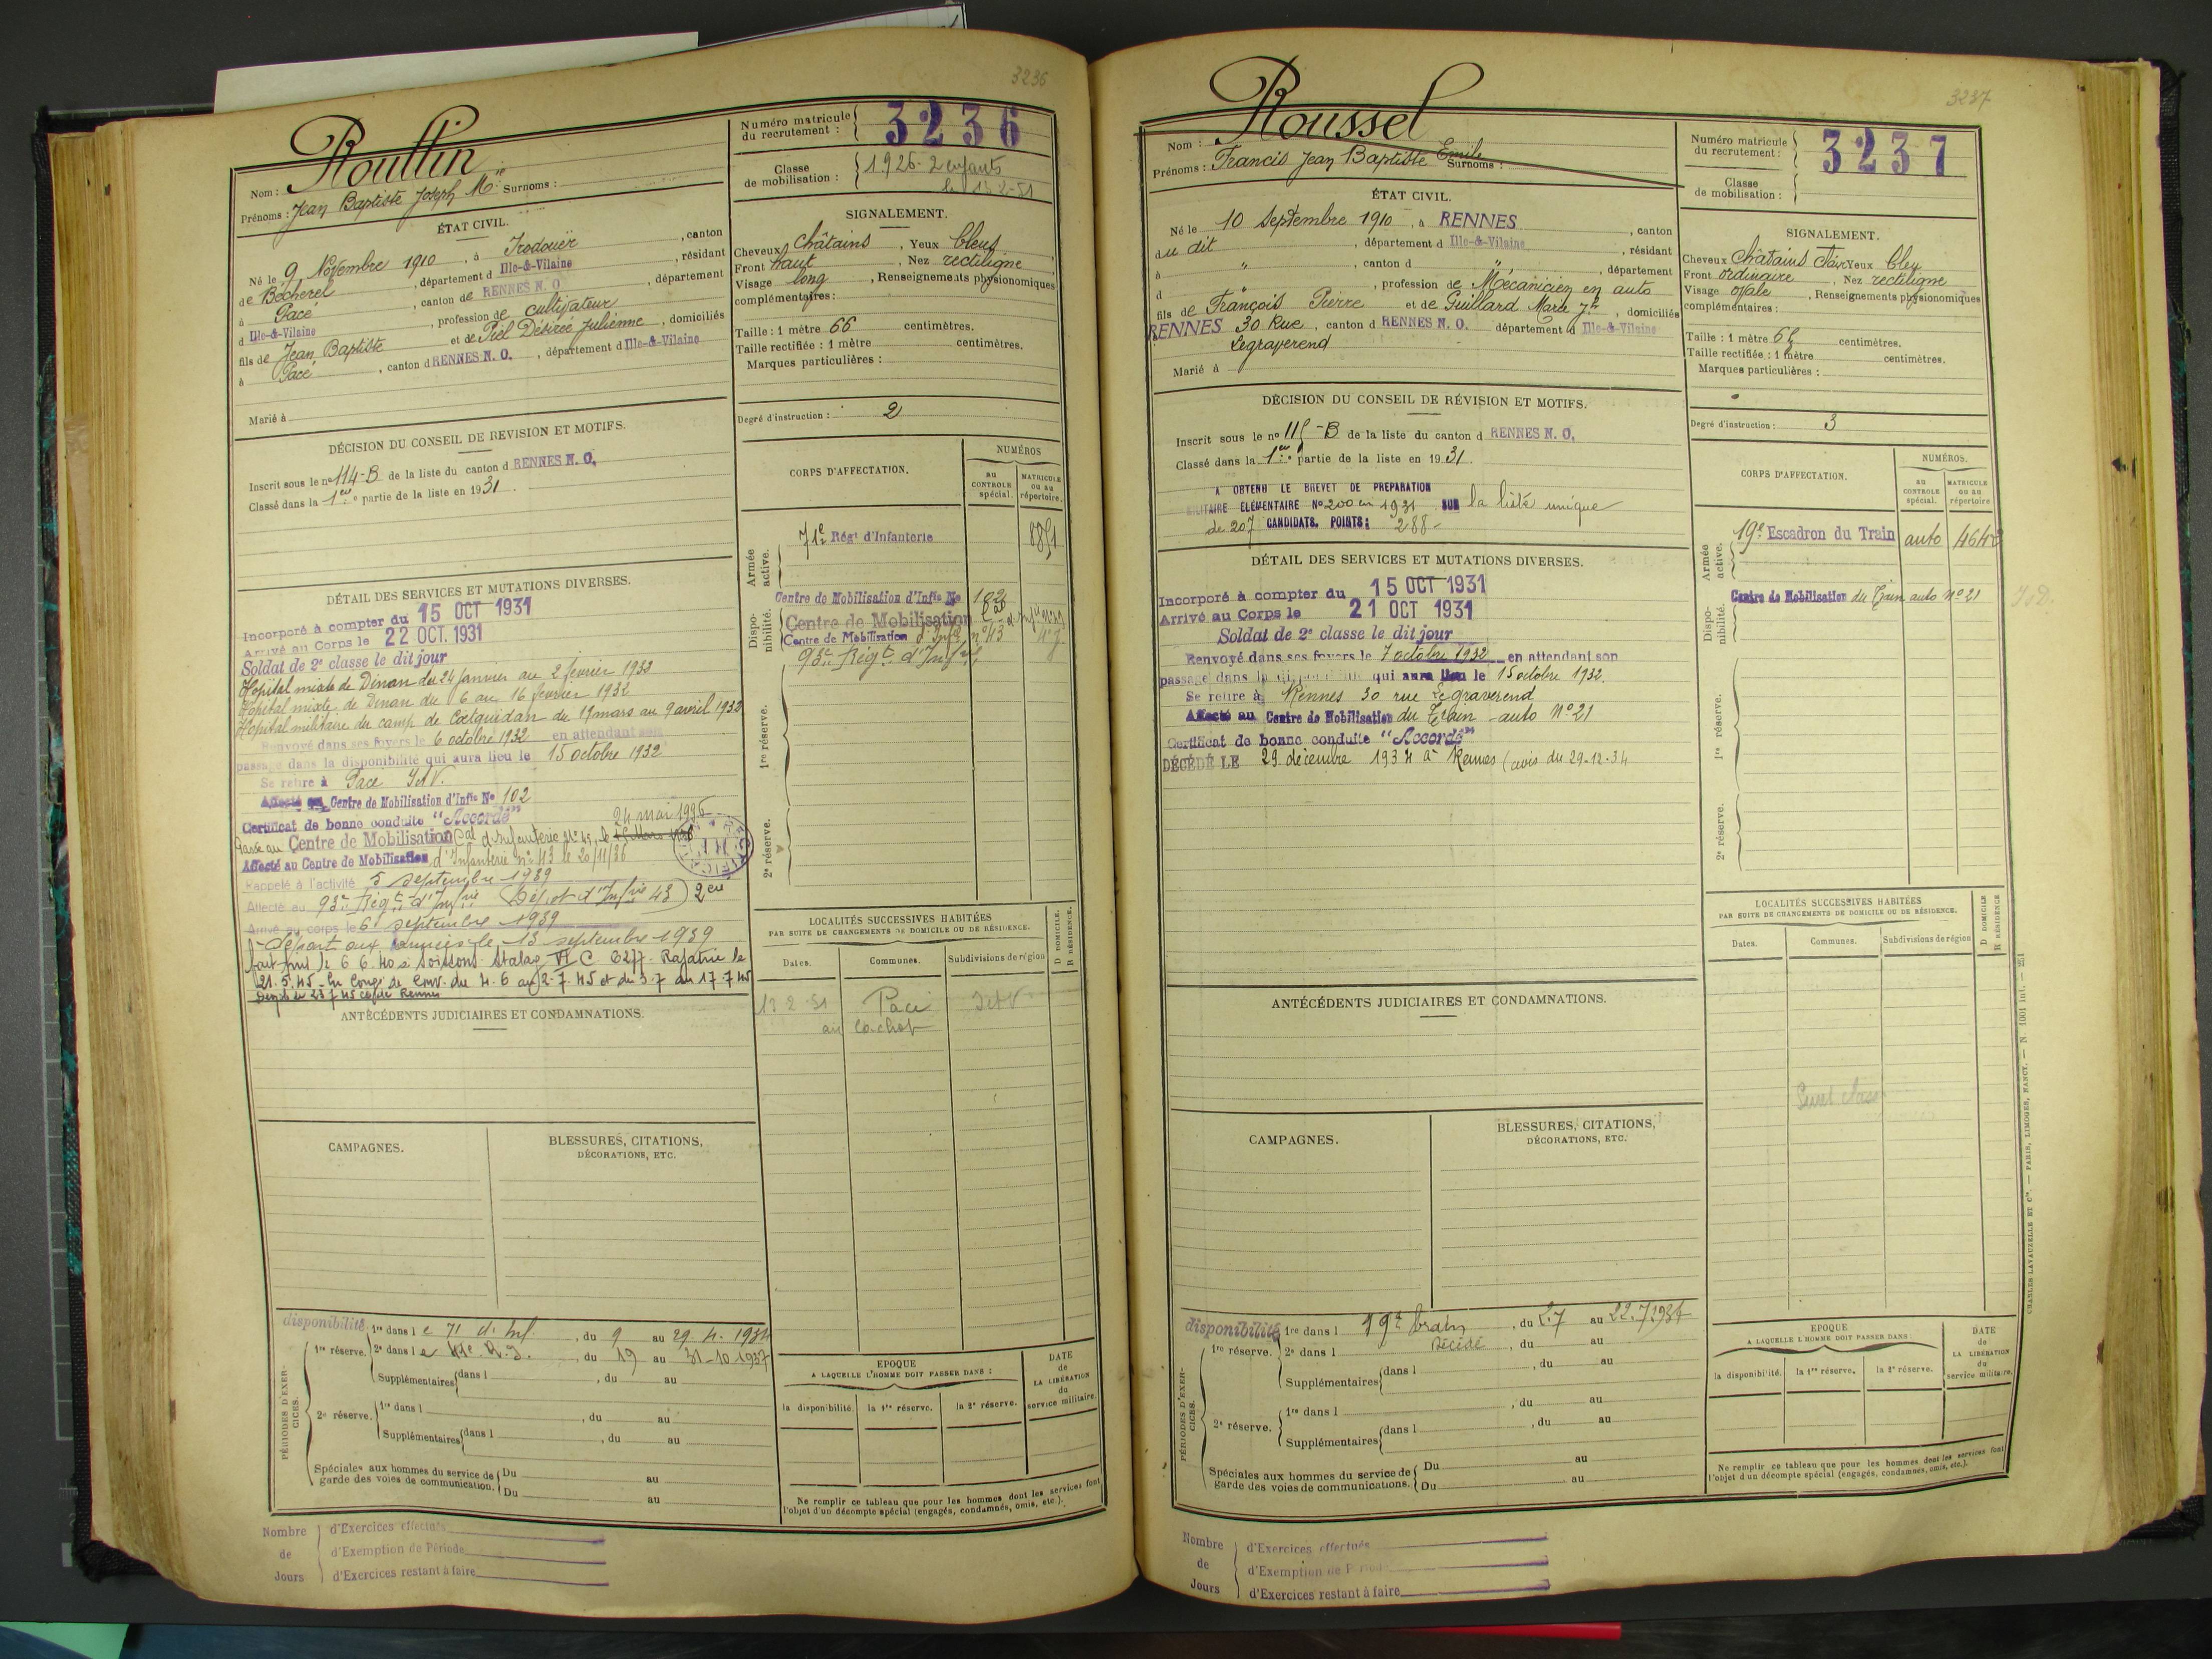 3236
Roullin
Nom :
Prénoms : Jean Baptiste Joseph Mie Surnoms :
Numéro matricule du recrutement : 3236
Classe de mobilisation : 1926 - 2 enfants
le 13-2-51
ÉTAT CIVIL.
Né le 9 Novembre 1910, à Irodouër, canton
de Bécherel, département d Ille-&-Vilaine, résidant
à Pacé, canton de RENNES N. O., département
d Ille-&-Vilaine, profession de cultivateur
fils de Jean Baptiste et de Piel Désirée Julienne, domiciliés
à Pacé, canton d RENNES N. O., département d Ille-&-Vilaine
Marié à
SIGNALEMENT.
Cheveux châtains, Yeux bleus
Front haut, Nez rectiligne
Visage long, Renseignements physionomiques
complémentaires :
Taille : 1 mètre 66 centimètres.
Taille rectifiée : 1 mètre centimètres.
Marques particulières :
Degré d'instruction : 2
DÉCISION DU CONSEIL DE REVISION ET MOTIFS.
Inscrit sous le no 114-B de la liste du canton d RENNES N. O.
Classé dans la 1ere partie de la liste en 1931.
CORPS D'AFFECTATION.
NUMÉROS
au CONTROLE spécial.
MATRICULE ou au répertoire.
Armée active.
71e Régt d'Infanterie
Dispo-nibilité.
Centre de Mobilisation d'Infie No 102
Centre de Mobilisation
Centre de Mobilisation d'Infie n° 43
93e Régt d'Infie
1re réserve.
2e réserve.
DÉTAIL DES SERVICES ET MUTATIONS DIVERSES.
Incorporé à compter du 15 OCT 1931
Arrivé au Corps le 22 OCT. 1931
Soldat de 2e classe le dit jour
Hopital mixte de Dinan du 24 janvier au 2 février 1932
Hopital mixte de Dinan du 6 au 16 février 1932
Hopital militaire du camp de Coëtquidan du 19 mars au 9 avril 1932
Renvoyé dans ses foyers le 6 octobre 1932 en attendant son
passage dans la disponibilité qui aura lieu le 15 octobre 1932
Se retire à Pacé I&V.
Affecté au Centre de Mobilisation d'Infie No 102
Certificat de bonne conduite "Accordé"
24 mai 1936
Passé au Centre de Mobilisation Cal d'Infanterie N° 43, le
Affecté au Centre de Mobilisation d'Infanterie n° 43 le 20/11/36
Rappelé à l'activité 5 septembre 1939
Affecté au 93e Régt d'Infie (Dépot d'Infie 43) 2e Cie
Arrivé au corps le 6 septembre 1939
Départ aux armées le 13 septembre 1939
fait pris le 6.6.40 à Soissons Stalag VI C 6277. Rapatrié le
21.5.45 - En Congé de Conv. du 4.6 au 2.7.45 et du 3.7 au 17.7.45
ANTÉCÉDENTS JUDICIAIRES ET CONDAMNATIONS.
LOCALITÉS SUCCESSIVES HABITÉES
PAR SUITE DE CHANGEMENTS DE DOMICILE OU DE RÉSIDENCE.
D DOMICILE.
R RÉSIDENCE.
Dates.
Communes.
Subdivisions de région
13 2 51 Pacé I&V
au cachot
CAMPAGNES.
BLESSURES, CITATIONS,
DÉCORATIONS, ETC.
PÉRIODES D'EXER-CICES.
disponibilité 1re dans le 71 d'Inf., du 9 au 29. 4. 1934
1re réserve. 2e dans le 41e R.I., du 19 au 31-10-1937
Supplémentaires dans l , du au
2e réserve. 1re dans l , du au
Supplémentaires dans l , du au
Spéciales aux hommes du service de garde des voies de communication. Du au
Du au
EPOQUE
A LAQUELLE L'HOMME DOIT PASSER DANS :
la disponibilité.
la 1re réserve.
la 2e réserve.
DATE de LA LIBÉRATION du service militaire.
Ne remplir ce tableau que pour les hommes dont les services font
l'objet d'un décompte spécial (engagés, condamnés, omis, etc.).
Nombre de Jours
d'Exercices effectués
d'Exemption de Période
d'Exercices restant à faire
3237
Roussel
Nom :
Prénoms : Francis Jean Baptiste Emile Surnoms :
Numéro matricule du recrutement : 3237
Classe de mobilisation :
ÉTAT CIVIL.
Né le 10 Septembre 1910, à RENNES, canton
du dit, département d Ille-&-Vilaine, résidant
à ", canton d ", département
d ", profession de Mécanicien en auto
fils de François Pierre et de Guillard Marie Jne, domiciliés
RENNES 30 Rue, canton d RENNES N. O. département d Ille-&-Vilaine
Legraverend
Marié à
SIGNALEMENT.
Cheveux Châtains clair Yeux bleu
Front ordinaire, Nez rectiligne
Visage ovale, Renseignements physionomiques
complémentaires :
Taille : 1 mètre centimètres.
Taille rectifiée : 1 mètre centimètres.
Marques particulières :
Degré d'instruction : 3
DÉCISION DU CONSEIL DE RÉVISION ET MOTIFS.
Inscrit sous le no 115-B de la liste du canton d RENNES N. O.
Classé dans la 1ere partie de la liste en 1931.
A OBTENU LE BREVET DE PREPARATION
MILITAIRE ELEMENTAIRE No 200 en 1931 SUR la liste unique
de 207 CANDIDATS. POINTS : 288 -
CORPS D'AFFECTATION.
NUMÉROS.
au CONTROLE spécial.
MATRICULE ou au répertoire
Armée active.
19e Escadron du Train auto
Dispo-nibilité.
Centre de Mobilisation du Train auto N° 21
1re réserve.
2e réserve.
DÉTAIL DES SERVICES ET MUTATIONS DIVERSES.
Incorporé à compter du 15 OCT 1931
Arrivé au Corps le 21 OCT 1931
Soldat de 2e classe le dit jour
Renvoyé dans ses foyers le 7 octobre 1932 en attendant son
passage dans la disponibilité qui aura lieu le 15 octobre 1932.
Se retire à Rennes 30 rue Legraverend
Affecté au Centre de Mobilisation du Train auto N° 21
Certificat de bonne conduite "Accordé"
DÉCÉDÉ LE 29 décembre 1934 à Rennes (avis du 29-12-34
ANTÉCÉDENTS JUDICIAIRES ET CONDAMNATIONS.
LOCALITÉS SUCCESSIVES HABITÉES
PAR SUITE DE CHANGEMENTS DE DOMICILE OU DE RÉSIDENCE.
D DOMICILE
R RÉSIDENCE
Dates.
Communes.
Subdivisions de région
CAMPAGNES.
BLESSURES, CITATIONS,
DÉCORATIONS, ETC.
PÉRIODES D'EXER-CICES.
disponibilité 1re dans l 19e train, du au 22.7.1934
1re réserve. 2e dans l Décédé, du au
Supplémentaires dans l , du au
2e réserve. 1re dans l , du au
Supplémentaires dans l , du au
Spéciales aux hommes du service de garde des voies de communications. Du au
Du au
EPOQUE
A LAQUELLE L'HOMME DOIT PASSER DANS
la disponibilité.
la 1re réserve.
la 2e réserve.
DATE de LA LIBÉRATION du service militaire.
Ne remplir ce tableau que pour les hommes dont les services font
l'objet d'un décompte spécial (engagés, condamnés, omis, etc.).
CHARLES-LAVAUZELLE ET Cie. — PARIS, LIMOGES, NANCY. — N° 1001 int. — 251
Nombre de Jours
d'Exercices effectués
d'Exemption de Période
d'Exercices restant à faire